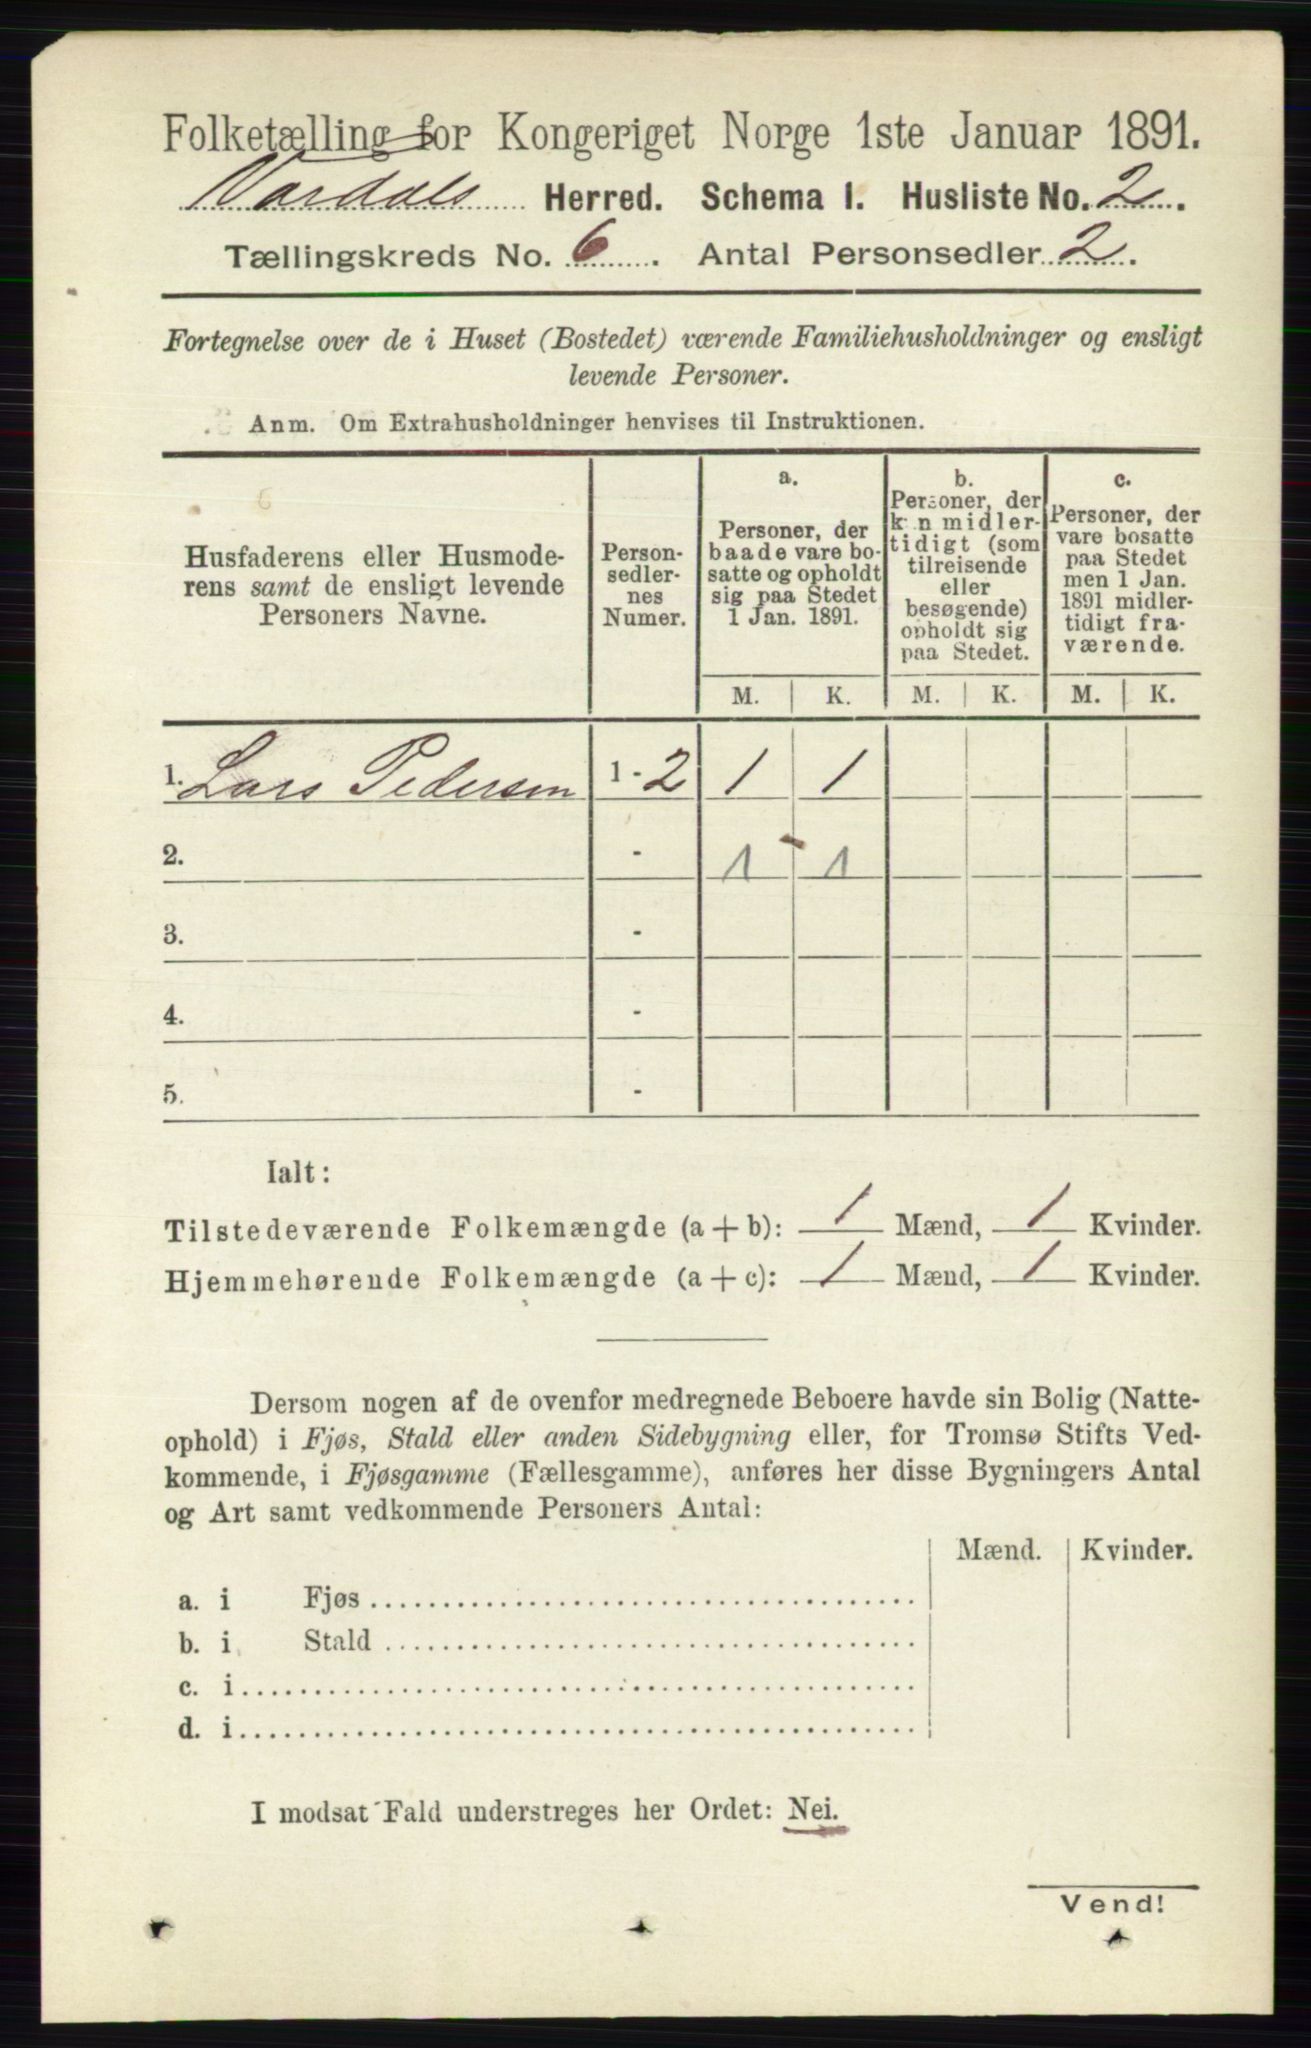 Folketælling for Kongeriget Norge 1ste Januar 1891.
Vardals Herred. Schema 1. Husliste No. 2.
Tællingskreds No. 6. Antal Personsedler 2.
Fortegnelse over de i Huset (Bostedet) værende Familiehusholdninger og ensligt
levende Personer.
Anm. Om Extrahusholdninger henvises til Instruktionen.
Husfaderens eller Husmode-
rens samt de ensligt levende
Personers Navne.
Person-
sedler-
nes
Numer.
a.
Personer, der
baade vare bo-
satte og opholdt
sig paa Stedet
1 Jan. 1891.
b.
Personer, der
kun midler-
tidigt (som
tilreisende
eller
besøgende)
opholdt sig
paa Stedet.
c.
Personer, der
vare bosatte
paa Stedet
men 1 Jan.
1891 midler-
tidigt fra-
værende.
M. K. M. K. M. K.
1. Lars Pedersen 1 - 2 1 1
2. - 1 1
3. -
4. -
5. -
Ialt:
Tilstedeværende Folkemængde (a + b): 1 Mænd, 1 Kvinder.
Hjemmehørende Folkemængde (a + c): 1 Mænd, 1 Kvinder.
Dersom nogen af de ovenfor medregnede Beboere havde sin Bolig (Natte-
ophold) i Fjøs, Stald eller anden Sidebygning eller, for Tromsø Stifts Ved-
kommende, i Fjøsgamme (Fællesgamme), anføres her disse Bygningers Antal
og Art samt vedkommende Personers Antal:
Mænd. Kvinder.
a. i Fjøs
b. i Stald
c. i
d. i
I modsat Fald understreges her Ordet: Nei.
Vend!